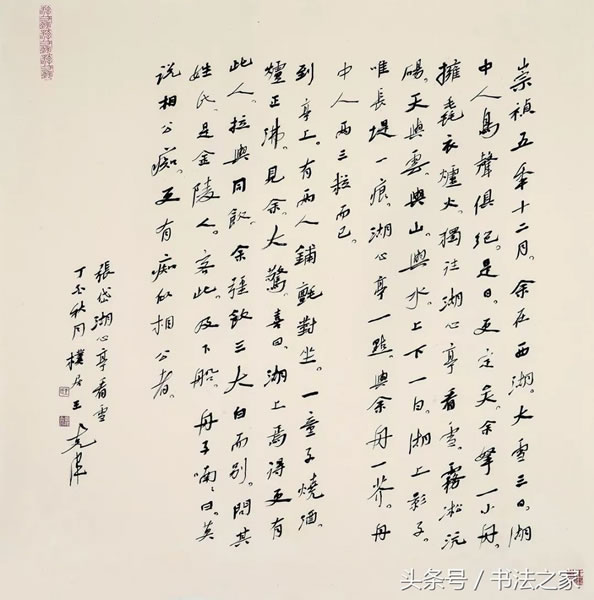 崇禎五年十二月。余在西湖。大雪三日。湖
中人鳥聲俱絕。是日。更定矣。余拏一小舟。
擁毳衣爐火。獨往湖心亭看雪。霧凇沆
碭。天與雲。與山。與水。上下一白。湖上影子。
唯長堤一痕。湖心亭一點與余舟一芥。舟
中人兩三粒而已。
到亭上。有兩人鋪氈對坐。一童子燒酒。
爐正沸。見余。大驚。喜曰。湖上焉得更有
此人。拉與同飲。余强飲三大白而別。問其
姓氏。是金陵人。客此。及下船。舟子喃喃曰。莫
说相公痴。更有痴似相公者。
張岱湖心亭看雪
丁酉秋月樸居王
头条号／书法之家